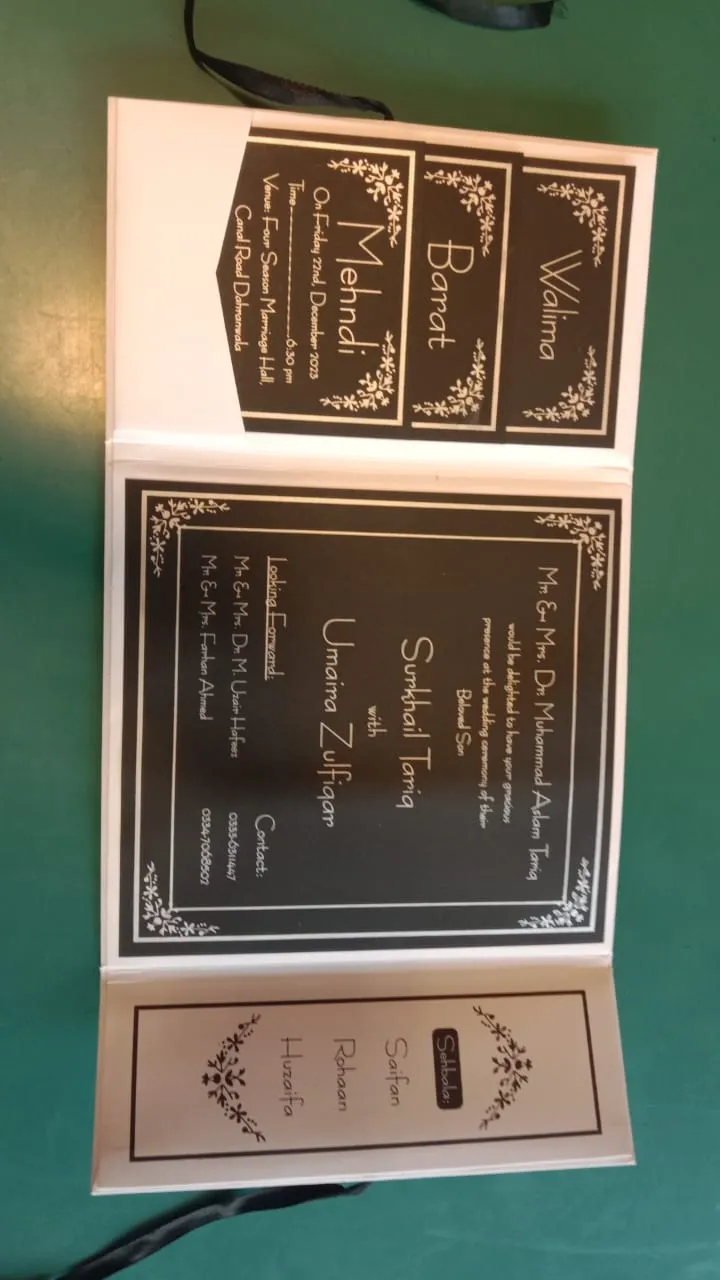 Walima
Barat
Mehndi
On Friday 22nd, December 2023
Time ---------------- 6:30 pm
Venue: Four Season Marriage Hall,
Canal Road Dahranwala
Mr. & Mrs. Dr. Muhammad Aslam Tariq
would be delighted to have your gracious
presence at the wedding ceremony of their
Beloved Son
Surkhail Tariq
with
Umaira Zulfiqar
Looking Forward:
Mr. & Mrs. Dr. M. Uzair Hafeez
Mr. & Mrs. Farhan Ahmed
Contact:
0333-6311447
0334-7068502
Sehbala:
Saifan
Rohaan
Huzaifa